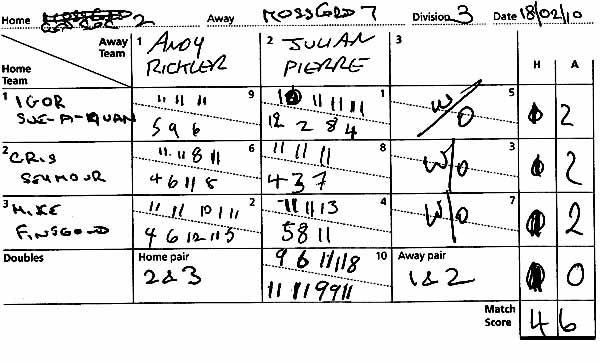 Home 2 Away MOSSGRD 7 Division 3 Date 18/02/10
Away Team 1 ANDY RICKLER 2 JULIAN PIERRE 3 H A
Home Team
1 IGOR 11 11 11 9 11 11 11 11 1 W/O 5 2
5 9 6 12 2 8 4
2 CRIS SEYMOUR 11 11 8 11 6 11 11 11 8 W/O 3 2
4 6 11 8 4 3 7
3 MIKE 11 11 10 11 11 2 11 11 13 4 W/O 7 2
4 6 12 11 5 5 8 11
Doubles Home pair 2&3 9 6 11 11 8 10 Away pair 1&2 0
11 11 9 9 11
Match Score 4 6